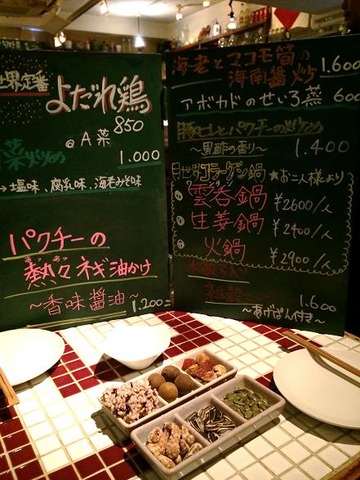 世界定番
よだれ鶏
850
@A菜
1.000
→塩味、腐乳味、海老みそ味
パクチーの
熱々ネギ油かけ
～香味醤油～ 1,200
海老とマコモ筍の
海南醤炒 1.600
アボカドのせいろ蒸 600
～黒酢の香り～ 1.400
コラーゲン鍋 ★お二人様より
雲呑鍋 ¥2600/人
生姜鍋 ¥2400/人
火鍋 ¥2900/人
1.600
～あげぱん付き～